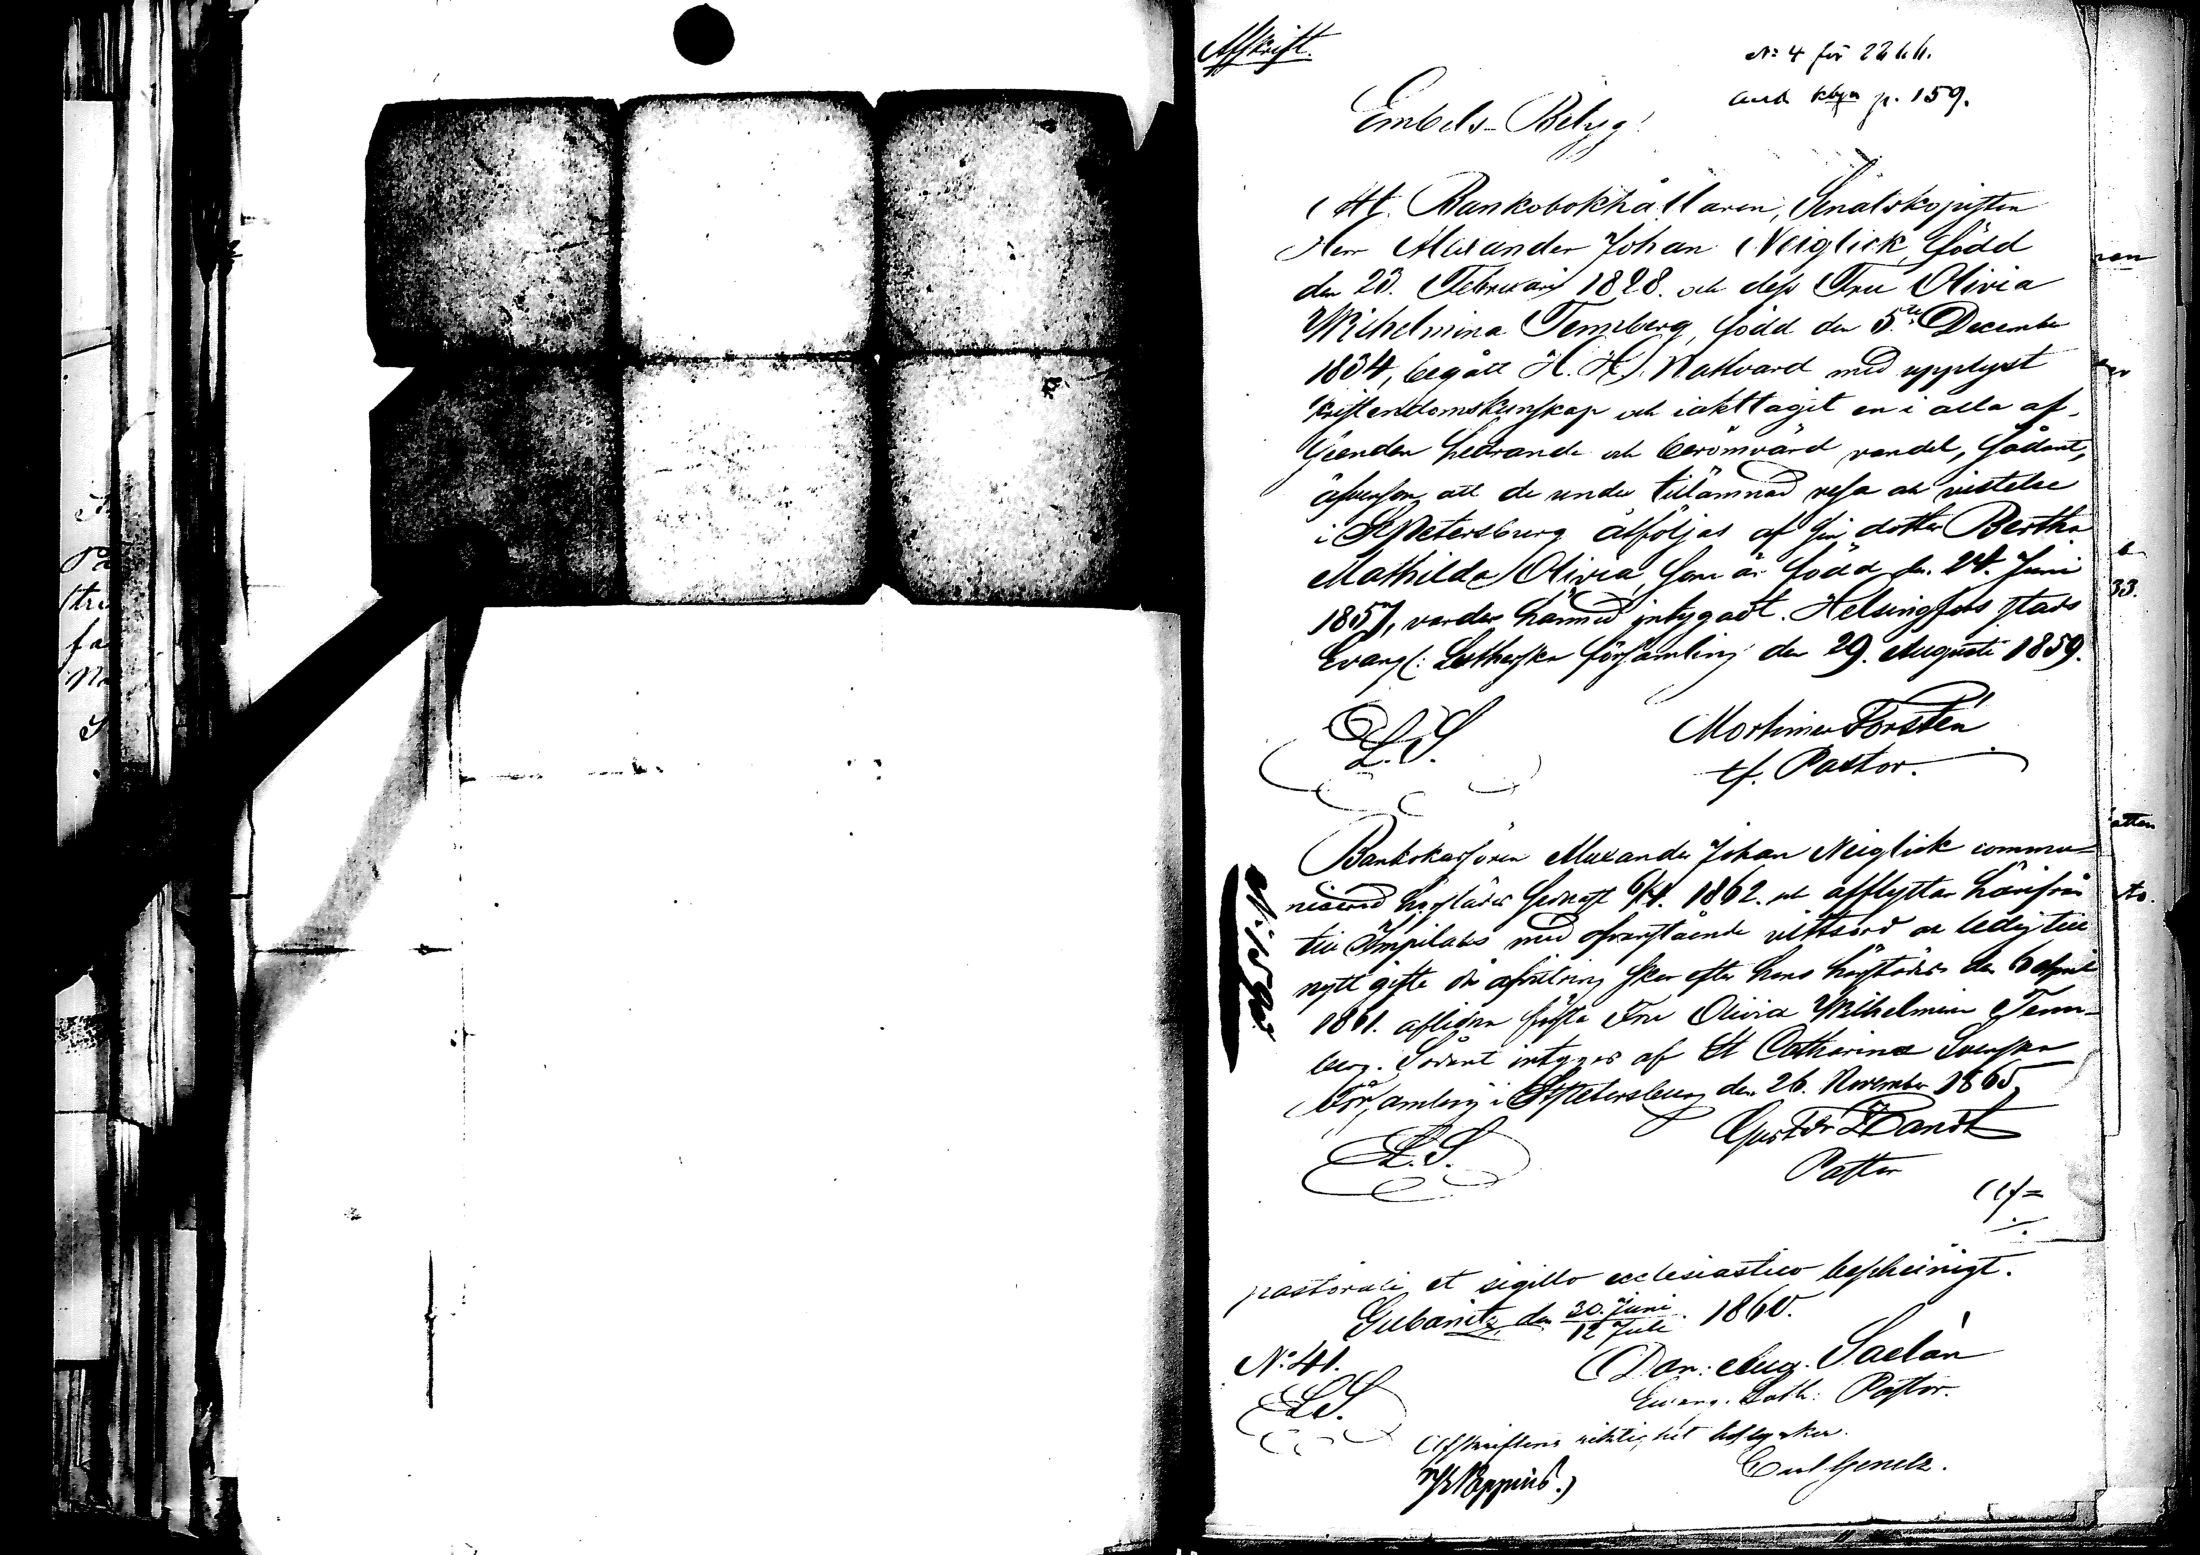 Afskrift.
N:o 4 för 22/6 61.
kbgn p. 159.
Embets-Betyg!
Att Bankobokhållaren, Senatskopisten
Herr Alexander Johan Neiglick, född
den 23. Februari 1828. och dess Fru Olivia
Wilhelmina Tennberg, född den 5te December
1834, begått H. H. Nattvard med upplyst
kristendomskunskap och iakttagit en i alla af-
seenden hedrande och berömvärd vandel, sådant,
äfvensom att de under tillämnad resa och vistelse
i St Petersburg åtföljas af sin dotter Bertha
Mathilda Olivia som är född den 24. Juni
1857, varder härmed intygadt. Helsingfors stads
Evang: Lutherska församling den 29. Augusti 1859.
L. S.
Mortimer Forstén
tf. Pastor.
Bankokassören Alexander Johan Neiglick commu-
nicerad härstädes senast 6/4. 1862. och afflyttar härifrån
till Impilaks med ofvanstående vittsord och ledig till
nytt gifte då afvittring sker efter hans härstädes den 6 April
1861. aflidna första Fru Olivia Wilhelmina Tenn-
berg. Sådant intygas af St Catharina Svenska
Församling i St Petersburg den 26. November 1865.
L. S.
Gustaf Bandt
Pastor
pastorali et sigillo ecclesiastico bescheinigt.
Gubanitz, den 30. Juni / 12 Juli 1860.
N:o 41.
Dan: Aug. Saelan
Evang. Luth: Pastor.
L. S.
Afskriftens riktighet bestyrker.
Carl Genetz.